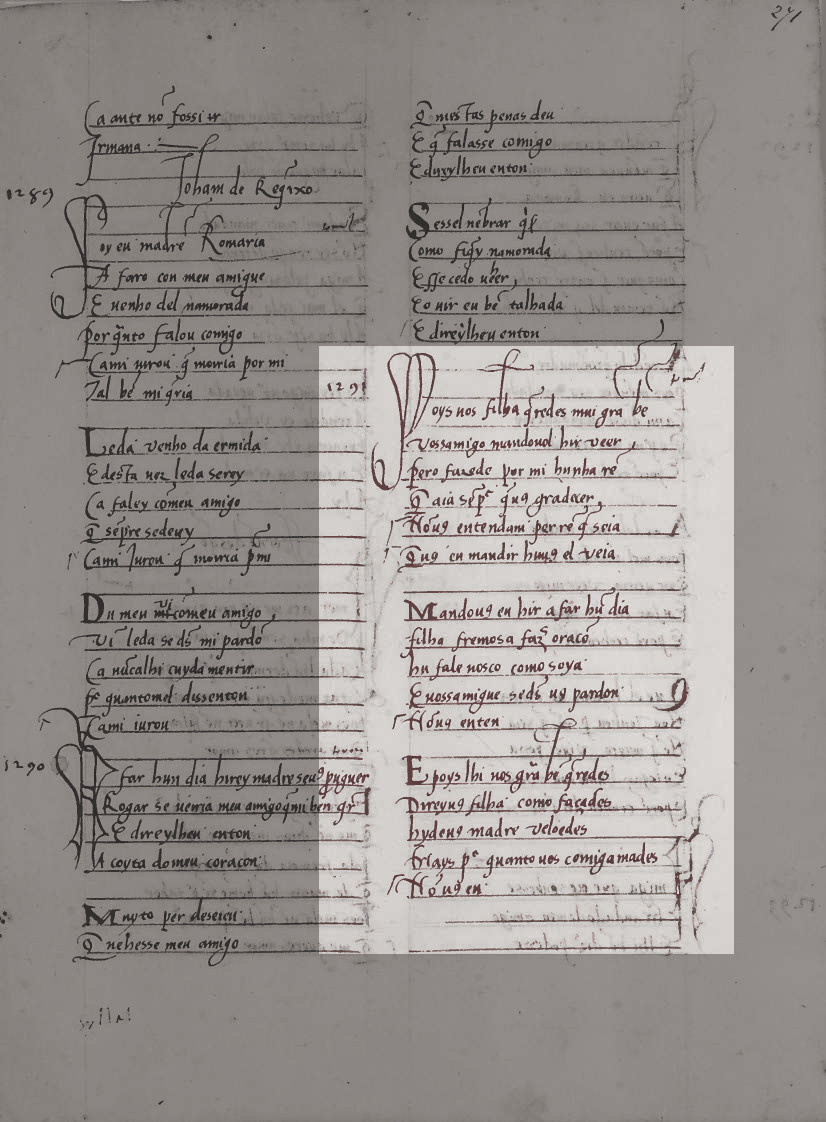 271
Ca ante nõ fossi ir
Irmana
Joham de Requeixo
1289
Foy eu madre Romaria
A farro con meu amigue
E uenho del namorada
Por qnto falou comigo
Cami iurou q̃ moiria por mi
Tal bẽ mi q̃ria
Leda venho da ermida
E desta uez leda serey
Ca faley comeu amigo
Q̃ semp̃re sedeiey
Cami Jurou q̃ moiria p̃ mi
Du meu ui comeu amigo
Vĩ leda se ds̃ mi pardõ
Ca nũcalhi cuyda mentir
quantomel dissenton
Cami iurou
1290
A far hun dia hirey madre seuꝰ puguer
Rogar se uerria meu amigoq̃mi ben gr̃
E direylheu enton
A coyta do meu coracon
Muyto per deseieu
Q̃ uehesse meu amigo
Q̃ mestas penas deu
E q̃ falasse comigo
E direylheu enton
Sessel nẽbrar
Como fiq̃y namorada
Esse cedo ueer
Eo uir eu bẽ talhada
E direylheu enton
1291
Poys uos filha q̃redes mui grã bẽ
Vossamigo mandouol hir ueer
Pero fazede por mi hunha rẽ
Q̃ aia semp̃ q̃ uꝰ gradecer
Nõ uꝰ entendam per rẽ q̃ seia
Q̃ uꝰ eu mandir huuꝰ el veia
Mandouꝰ eu hir a far hũ dia
filha fremosa faz̃ oracõ
hu fale uosco como soya
E uossamigue se ds̃ uꝰ pardon
Nõ uꝰ enten
E poys lhi uos grã bẽ q̃redes
Direyuꝰ filha como facades
hydeuꝰ madre veloedes
quanto uos comigamades
Nõ uꝰ en